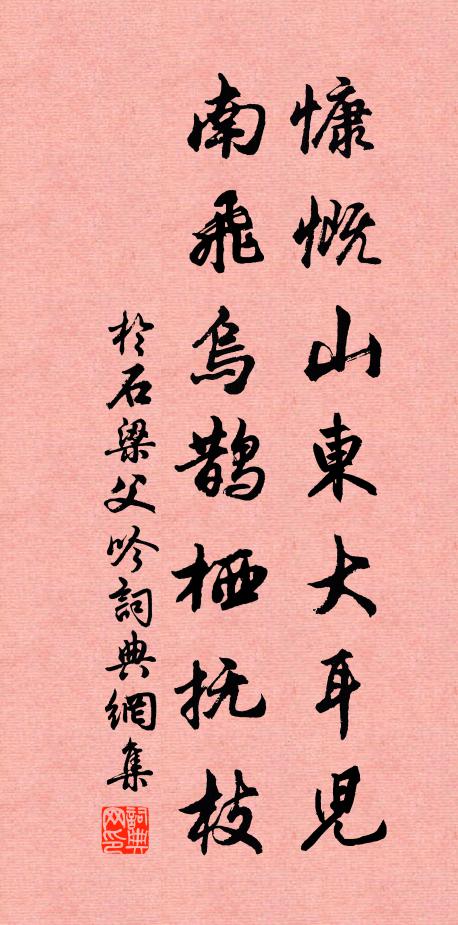 慷慨山東大耳兒
南飛烏鵲栖抚枝
於石梁父吟詞典網集
詞典网印